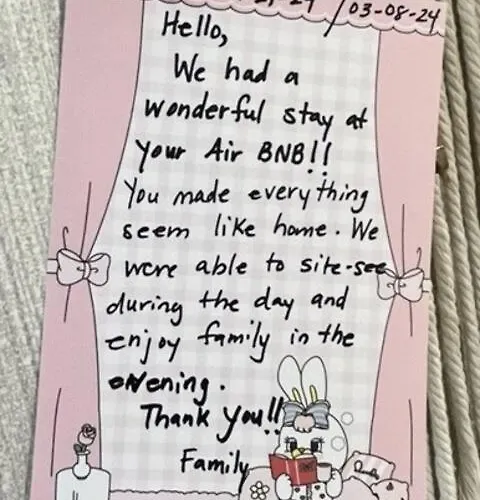 03-08-24
Hello,
We had a
wonderful stay at
your Air BNB!!
You made everything
seem like home. We
were able to site-see
during the day and
enjoy family in the
evening.
Thank you!!
Family